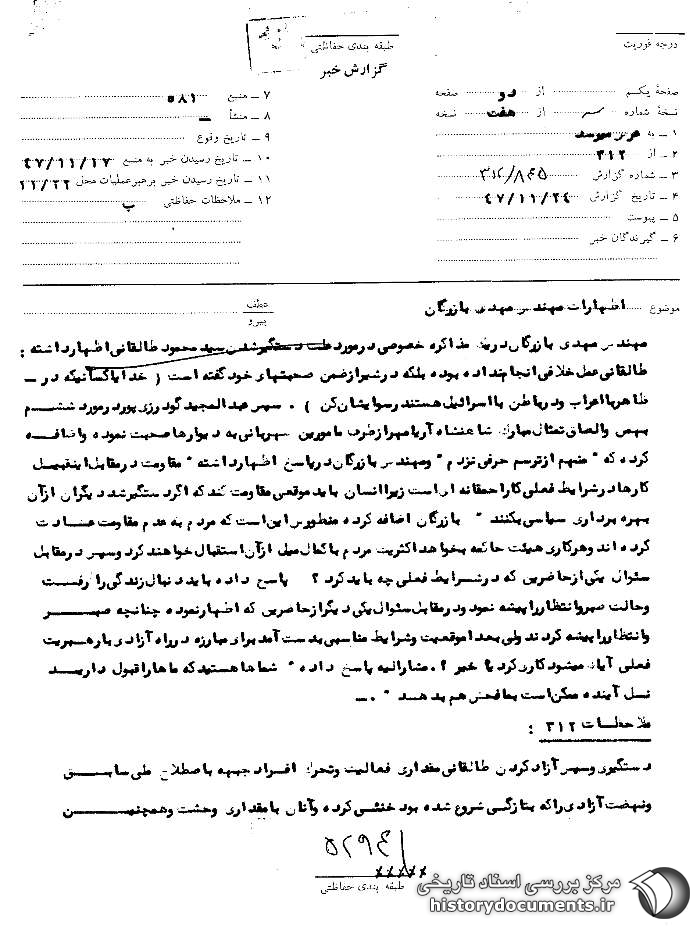 درجه فوریت
طبقه بندی حفاظتی
گزارش خبر
صفحهٔ یکم از دو صفحه
نسخهٔ شماره از هفت نسخه
۱ ــ به
۲ ــ از ۳۱۲
۳ ــ شماره گزارش
۴ ــ تاریخ گزارش ۴۷/۱۱/۲۴
۵ ــ پیوست
۶ ــ گیرندگان خبر
۷ ــ منبع ۵۸۱
۸ ــ منشأ
۹ ــ تاریخ وقوع
۱۰ ــ تاریخ رسیدن خبر به منبع ۴۷/۱۱/۱۷
۱۱ ــ تاریخ رسیدن خبر برهبرعملیات محل
۱۲ ــ ملاحظات حفاظتی
موضوع اظهارات مهندس مهدی بازرگان
عطف
پیرو
مهندس مهدی بازرگان دریک مذاکره خصوصی درمورد علت دستگیرشدن سید محمود طالقانی اظهارداشته :
طالقانی عمل خلافی انجام نداده بوده بلکه درشیراز ضمن صحبتهای خود گفته است ( خدایا کسانیکه در ــ
ظاهر با اعراب ودرباطن با اسرائیل هستند رسوایشان کن ) . سپس عبدالمجید گودرزی پور درمورد ششم
بهمن والصاق تمثال مبارک شاهنشاه آریامهر ازطرف مامورین شهربانی به دیوارها صحبت نموده واضافه
کرده که " منهم ازترسم حرفی نزدم " ومهندس بازرگان درپاسخ اظهارداشته " مقاومت درمقابل اینقبیل
کارها درشرایط فعلی کار احمقانه ای است زیرا انسان باید موقعی مقاومت کند که اگر دستگیر شد دیگران ازآن
بهره برداری سیاسی بکنند " بازرگان اضافه کرده منظور براین است که مردم به عدم مقاومت عادت
کرده اند وهرکاری هیئت حاکمه بخواهد اکثریت مردم با کمال میل ازآن استقبال خواهند کرد وسپس درمقابل
سئوال یکی ازحاضرین که درشرایط فعلی چه باید کرد ؟ پاسخ داده باید دنبال زندگی را گرفت
وحالت صبروانتظار را پیشه نمود ودرمقابل سئوال یکی دیگر ازحاضرین که اظهارنموده چنانچه صبر
وانتظار را پیشه کردند ولی بعدا موقعیت وشرایط مناسبی بدست آمد برای مبارزه درراه آزادی با رهبریت
فعلی آیا میشود کاری کرد یا خیر ؟ . مشارالیه پاسخ داده " شماها هستید که ماها را قبول دارید
نسل آینده ممکن است بما فحش هم بدهند " . ــ
ملاحظات ۳۱۲ :
دستگیری وسپس آزاد کردن طالقانی مقداری فعالیت وتحرک افراد جبهه باصطلاح ملی سابق
ونهضت آزادی را که بتازگی شروع شده بود خنثی کرده وآنان با مقداری وحشت وهمچنین
طبقه بندی حفاظتی
مرکز بررسی اسناد تاریخی
historydocuments.ir